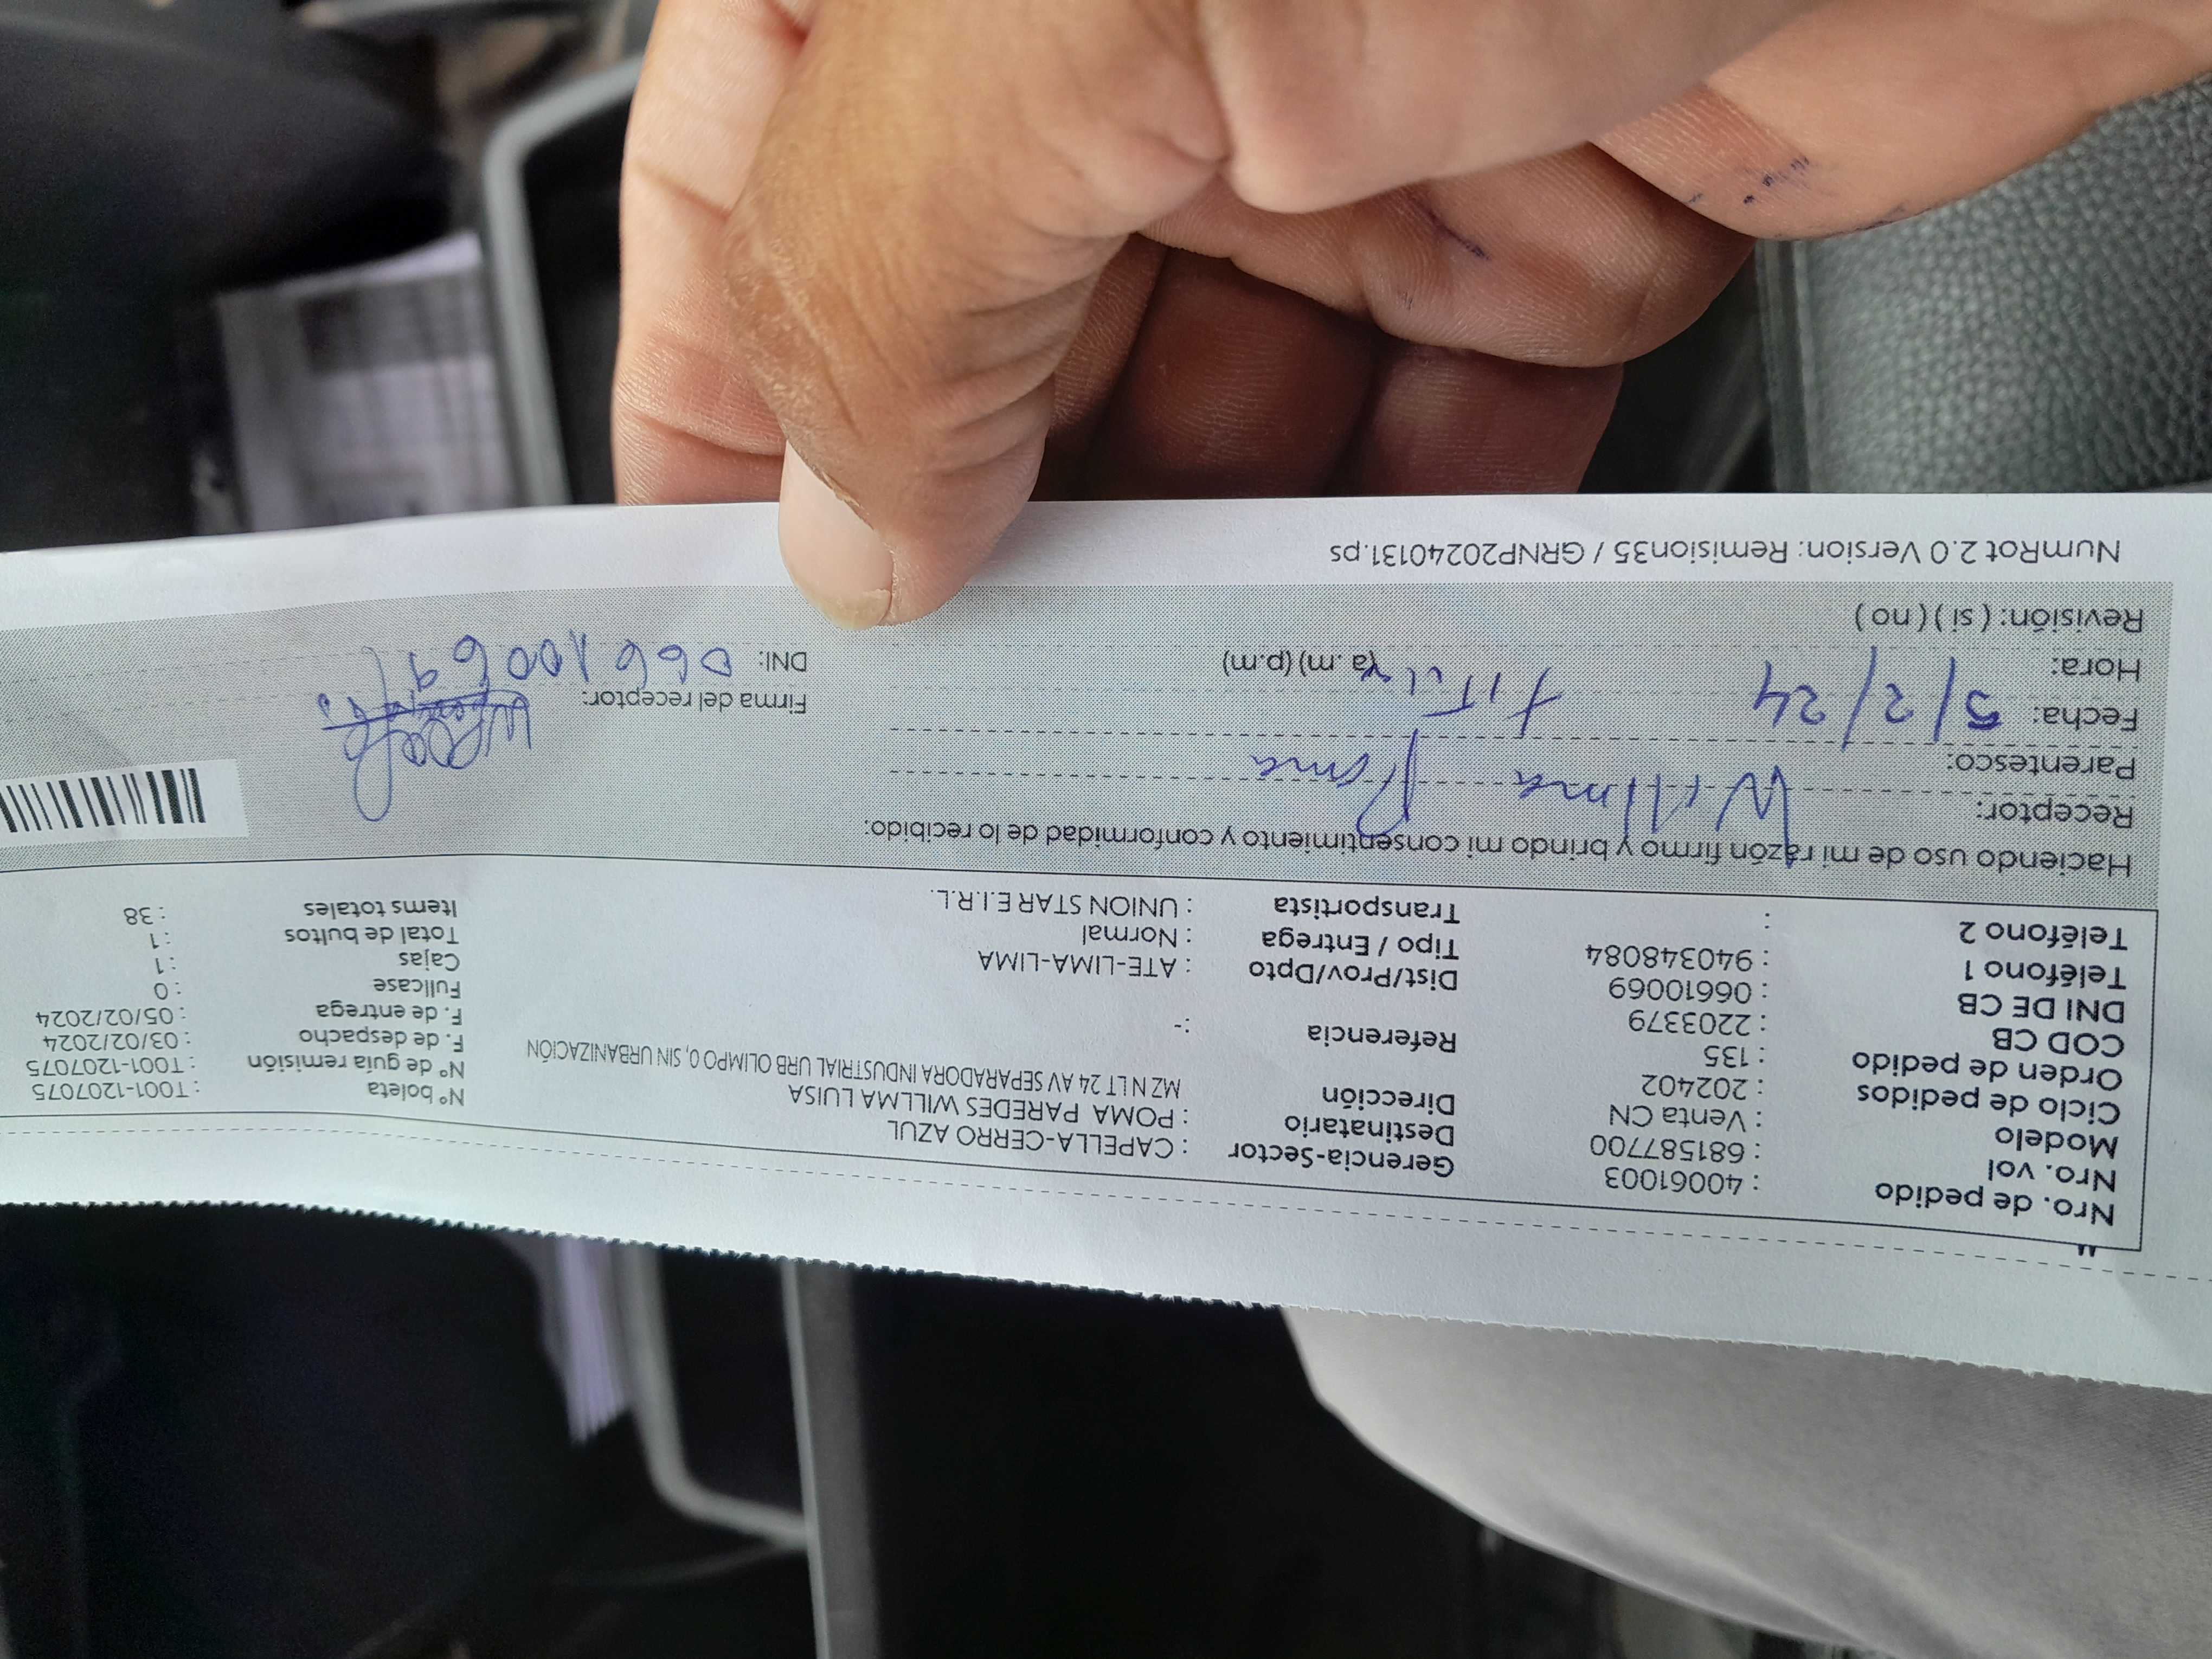 Nro. de pedido : 40061003 Gerencia-Sector : CAPELLA-CERRO AZUL
Nro. vol : 681587700 Destinatario : POMA PAREDES WILLMA LUISA Nº boleta : T001-1207075
Modelo : Venta CN Dirección MZ N LT 24 AV SEPARADORA INDUSTRIAL URB OLIMPO 0, SIN URBANIZACIÓN Nº de guía remisión : T001-1207075
Ciclo de pedidos : 202402 F. de despacho : 03/02/2024
Orden de pedido : 135 Referencia :- F. de entrega : 05/02/2024
COD CB : 2203379 Fullcase : 0
DNI DE CB : 06610069 Dist/Prov/Dpto : ATE-LIMA-LIMA Cajas : 1
Teléfono 1 : 940348084 Tipo / Entrega : Normal Total de bultos : 1
Teléfono 2 : Transportista : UNION STAR E.I.R.L. Items totales : 38
Haciendo uso de mi razón firmo y brindo mi consentimiento y conformidad de lo recibido:
Receptor: Willma Poma
Parentesco:
Fecha: 5/2/24 Firma del receptor:
Hora: (a.m) (p.m) DNI: 06610069
Revisión: ( si ) ( no )
NumRot 2.0 Version: Remision35 / GRNP20240131.ps